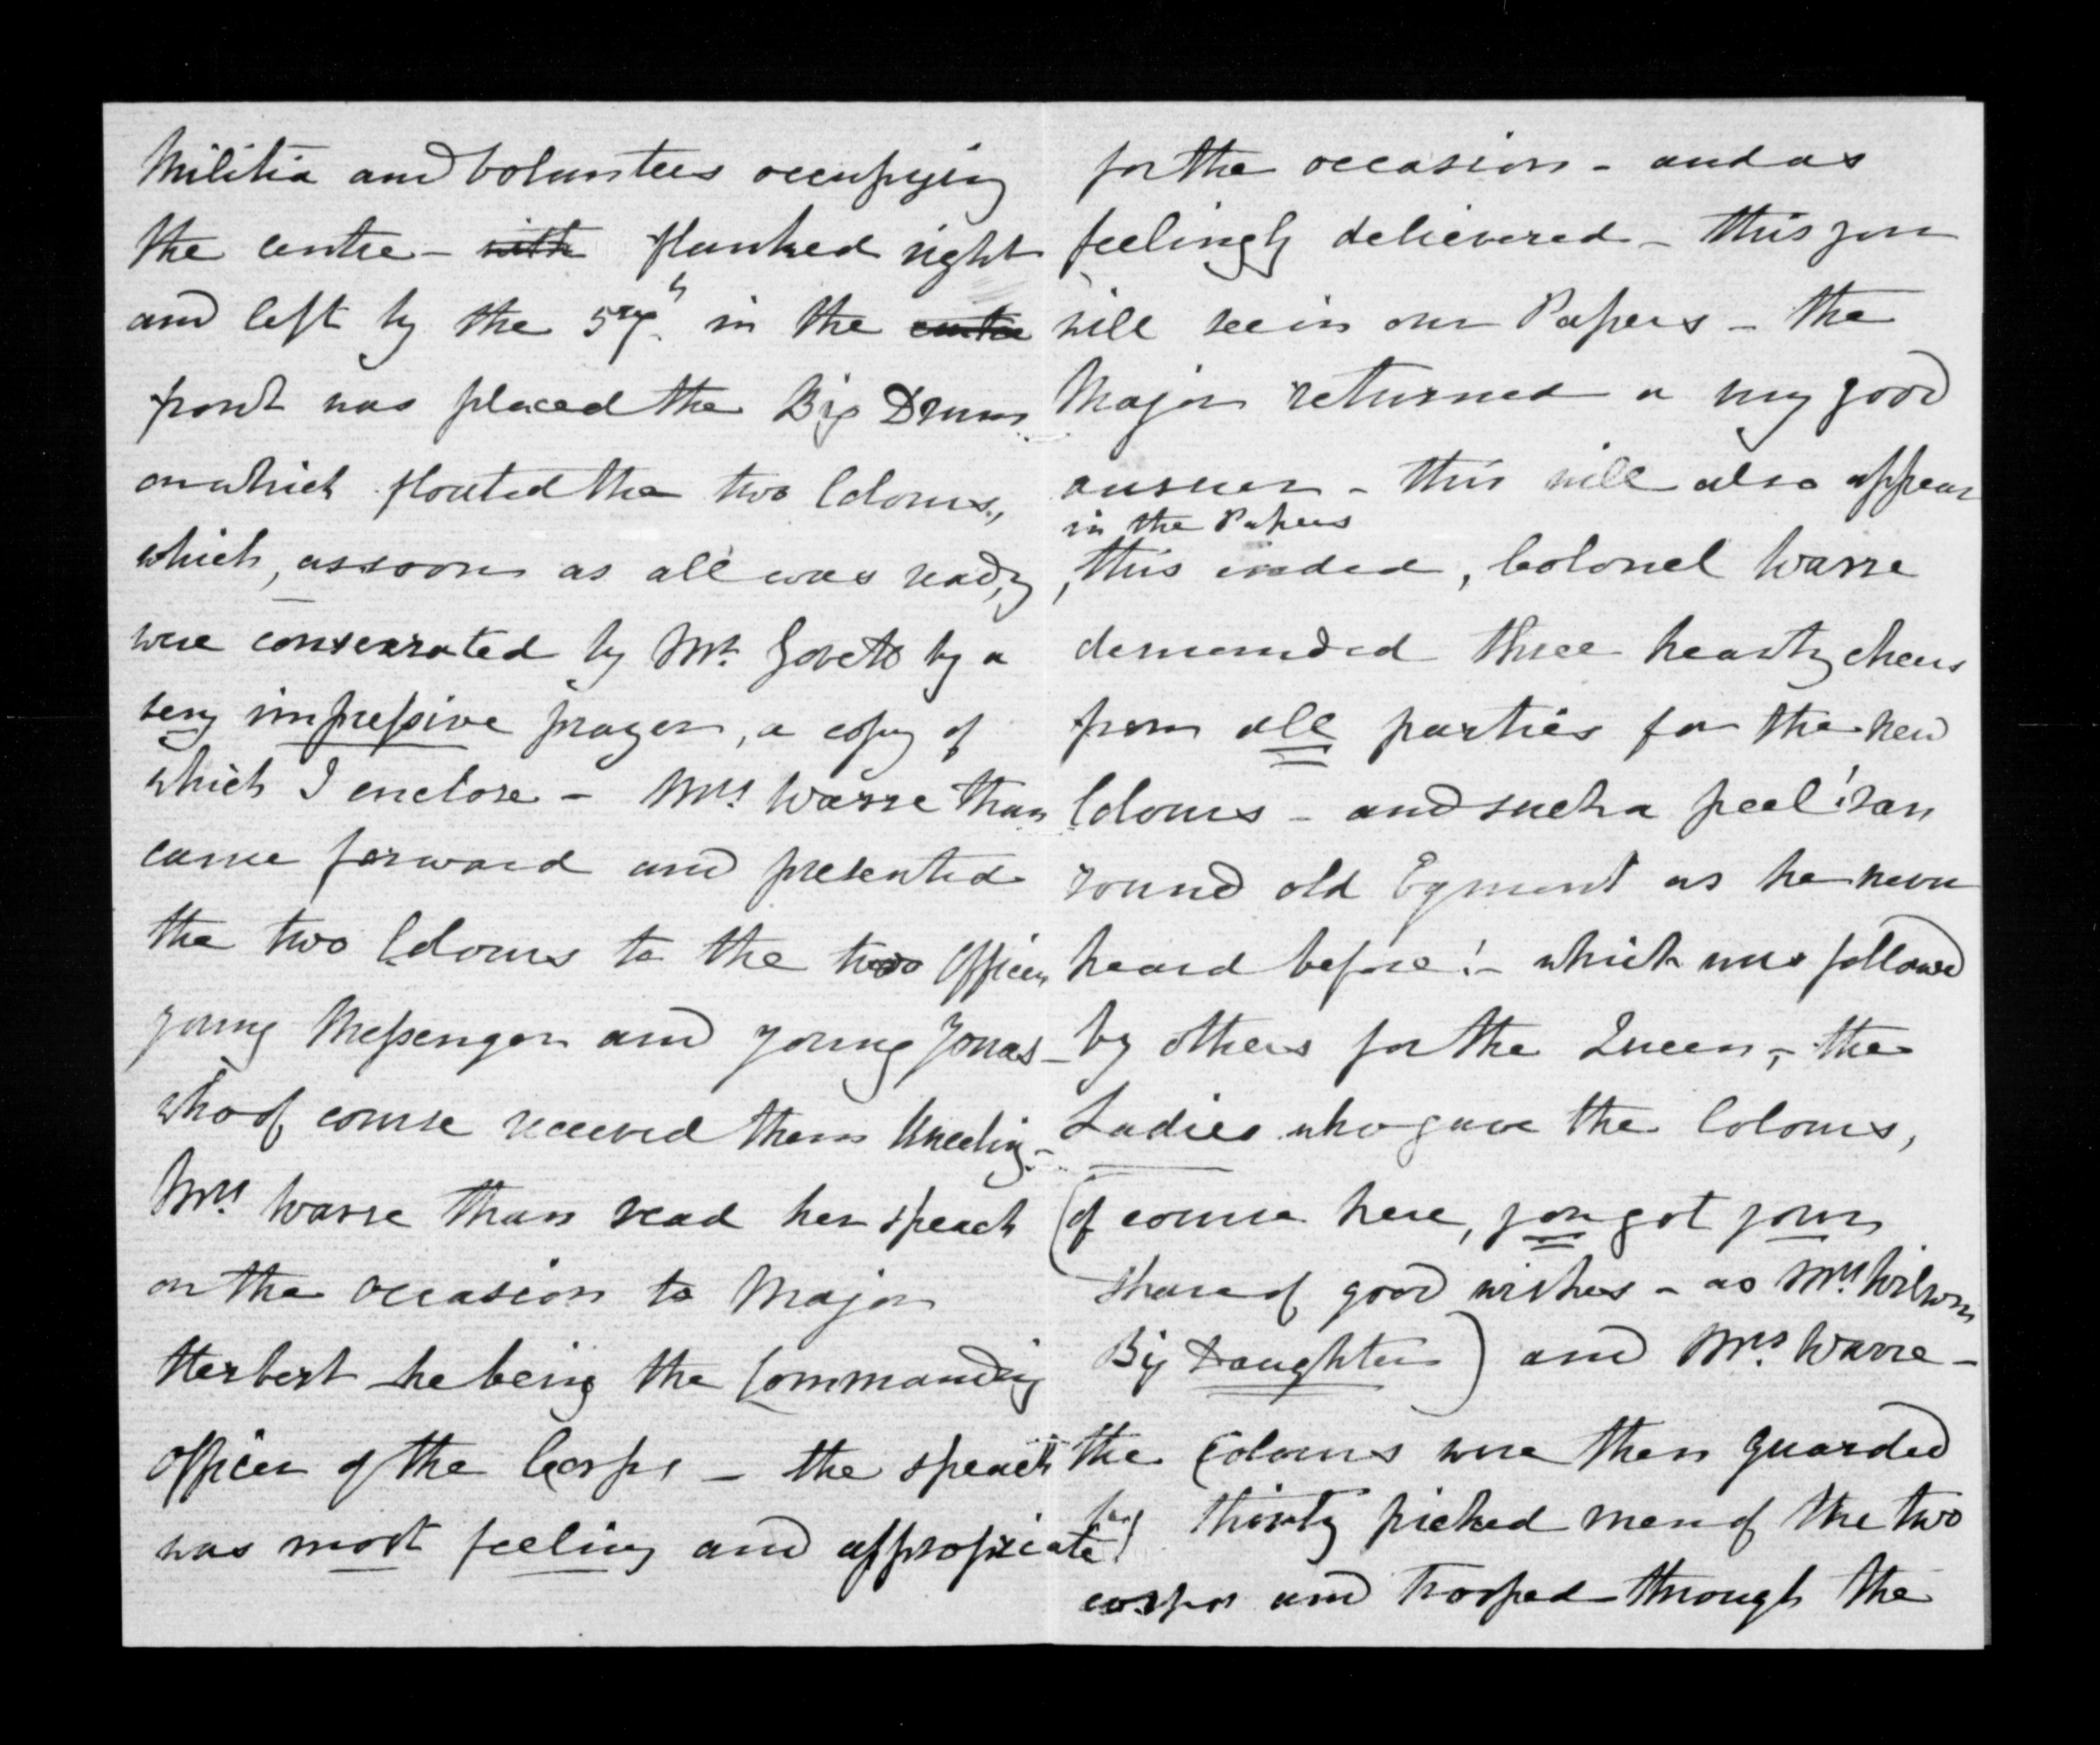 Militia and Volunteers occupying
the centre - with flanked right
and left by the 57th. in the centre
front was placed the Big Drum
on which floated the two Colours,
which, as soon as all was ready,
were consecrated by Mr. Govett by a
very impressive prayer, a copy of
which I enclose - Mrs. Warre than
came forward and presented
the two Colours to the two Officers
young Messenger and young Jonas -
who of course received them kneeling -
Mrs. Warre than read her speach
on the occasion to Major
Herbert he being the Commanding
Officer of the Corps - the speach
was most feeling and appropriate
for the occasion - and as
feelingly delievered - this you
will see in our Papers - the
Major returned a very good
answer - this will also appear
in the Papers
, this ended, Colonel Warre
demanded three hearty cheers
from all parties for the new
Colours - and such a peel! ran
round old Egmont as he never
heard before! - which was followed
by others for the Queen, - the
Ladies who gave the Colours,
(of course here, you got your
share of good wishes - as Mrs. Wilsons
Big Daughters) and Mrs. Warre -
the Colours were then guarded
by thirty picked men of the two
corps and Trooped through the